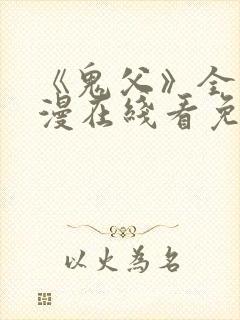 《鬼父》全
漫在线看免
以火為名